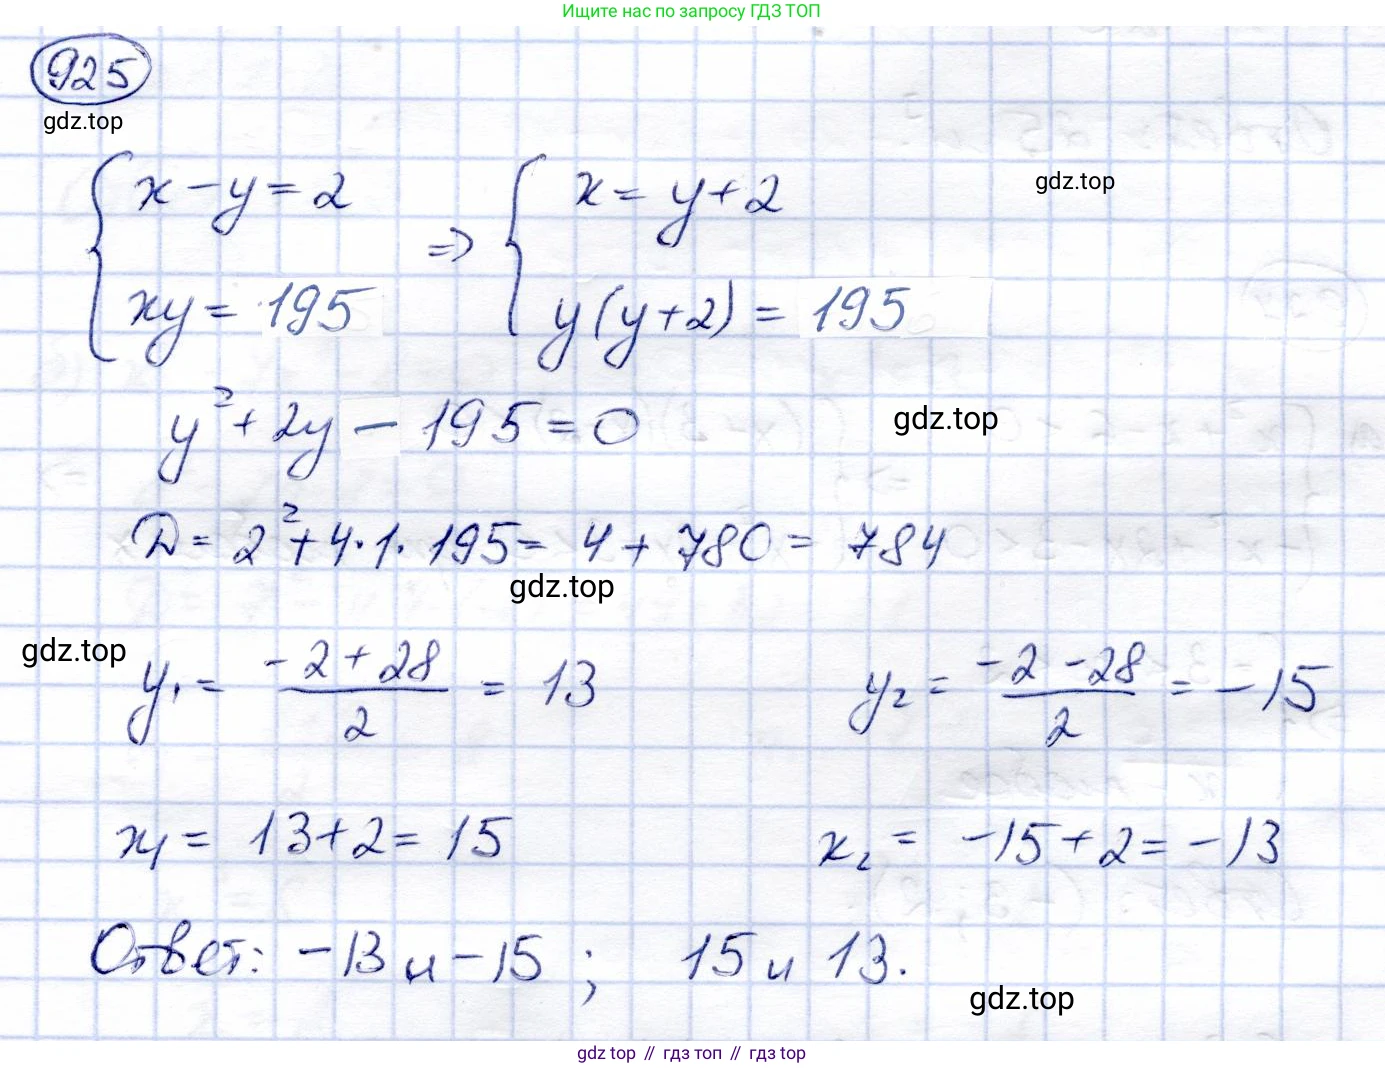 Ищите нас по запросу ГДЗ ТОП
925
gdz.top
x - y = 2 ⇒ x = y + 2
gdz.top
xy = 195 y(y+2) = 195
y² + 2y - 195 = 0
gdz.top
D = 2² + 4·1·195 = 4 + 780 = 784
gdz.top
gdz.top
y₁ = (-2 + 28)/2 = 13 y₂ = (-2 - 28)/2 = -15
x₁ = 13 + 2 = 15 x₂ = -15 + 2 = -13
Ответ: -13 и -15; 15 и 13.
gdz.top
gdz top // гдз топ // гдз top